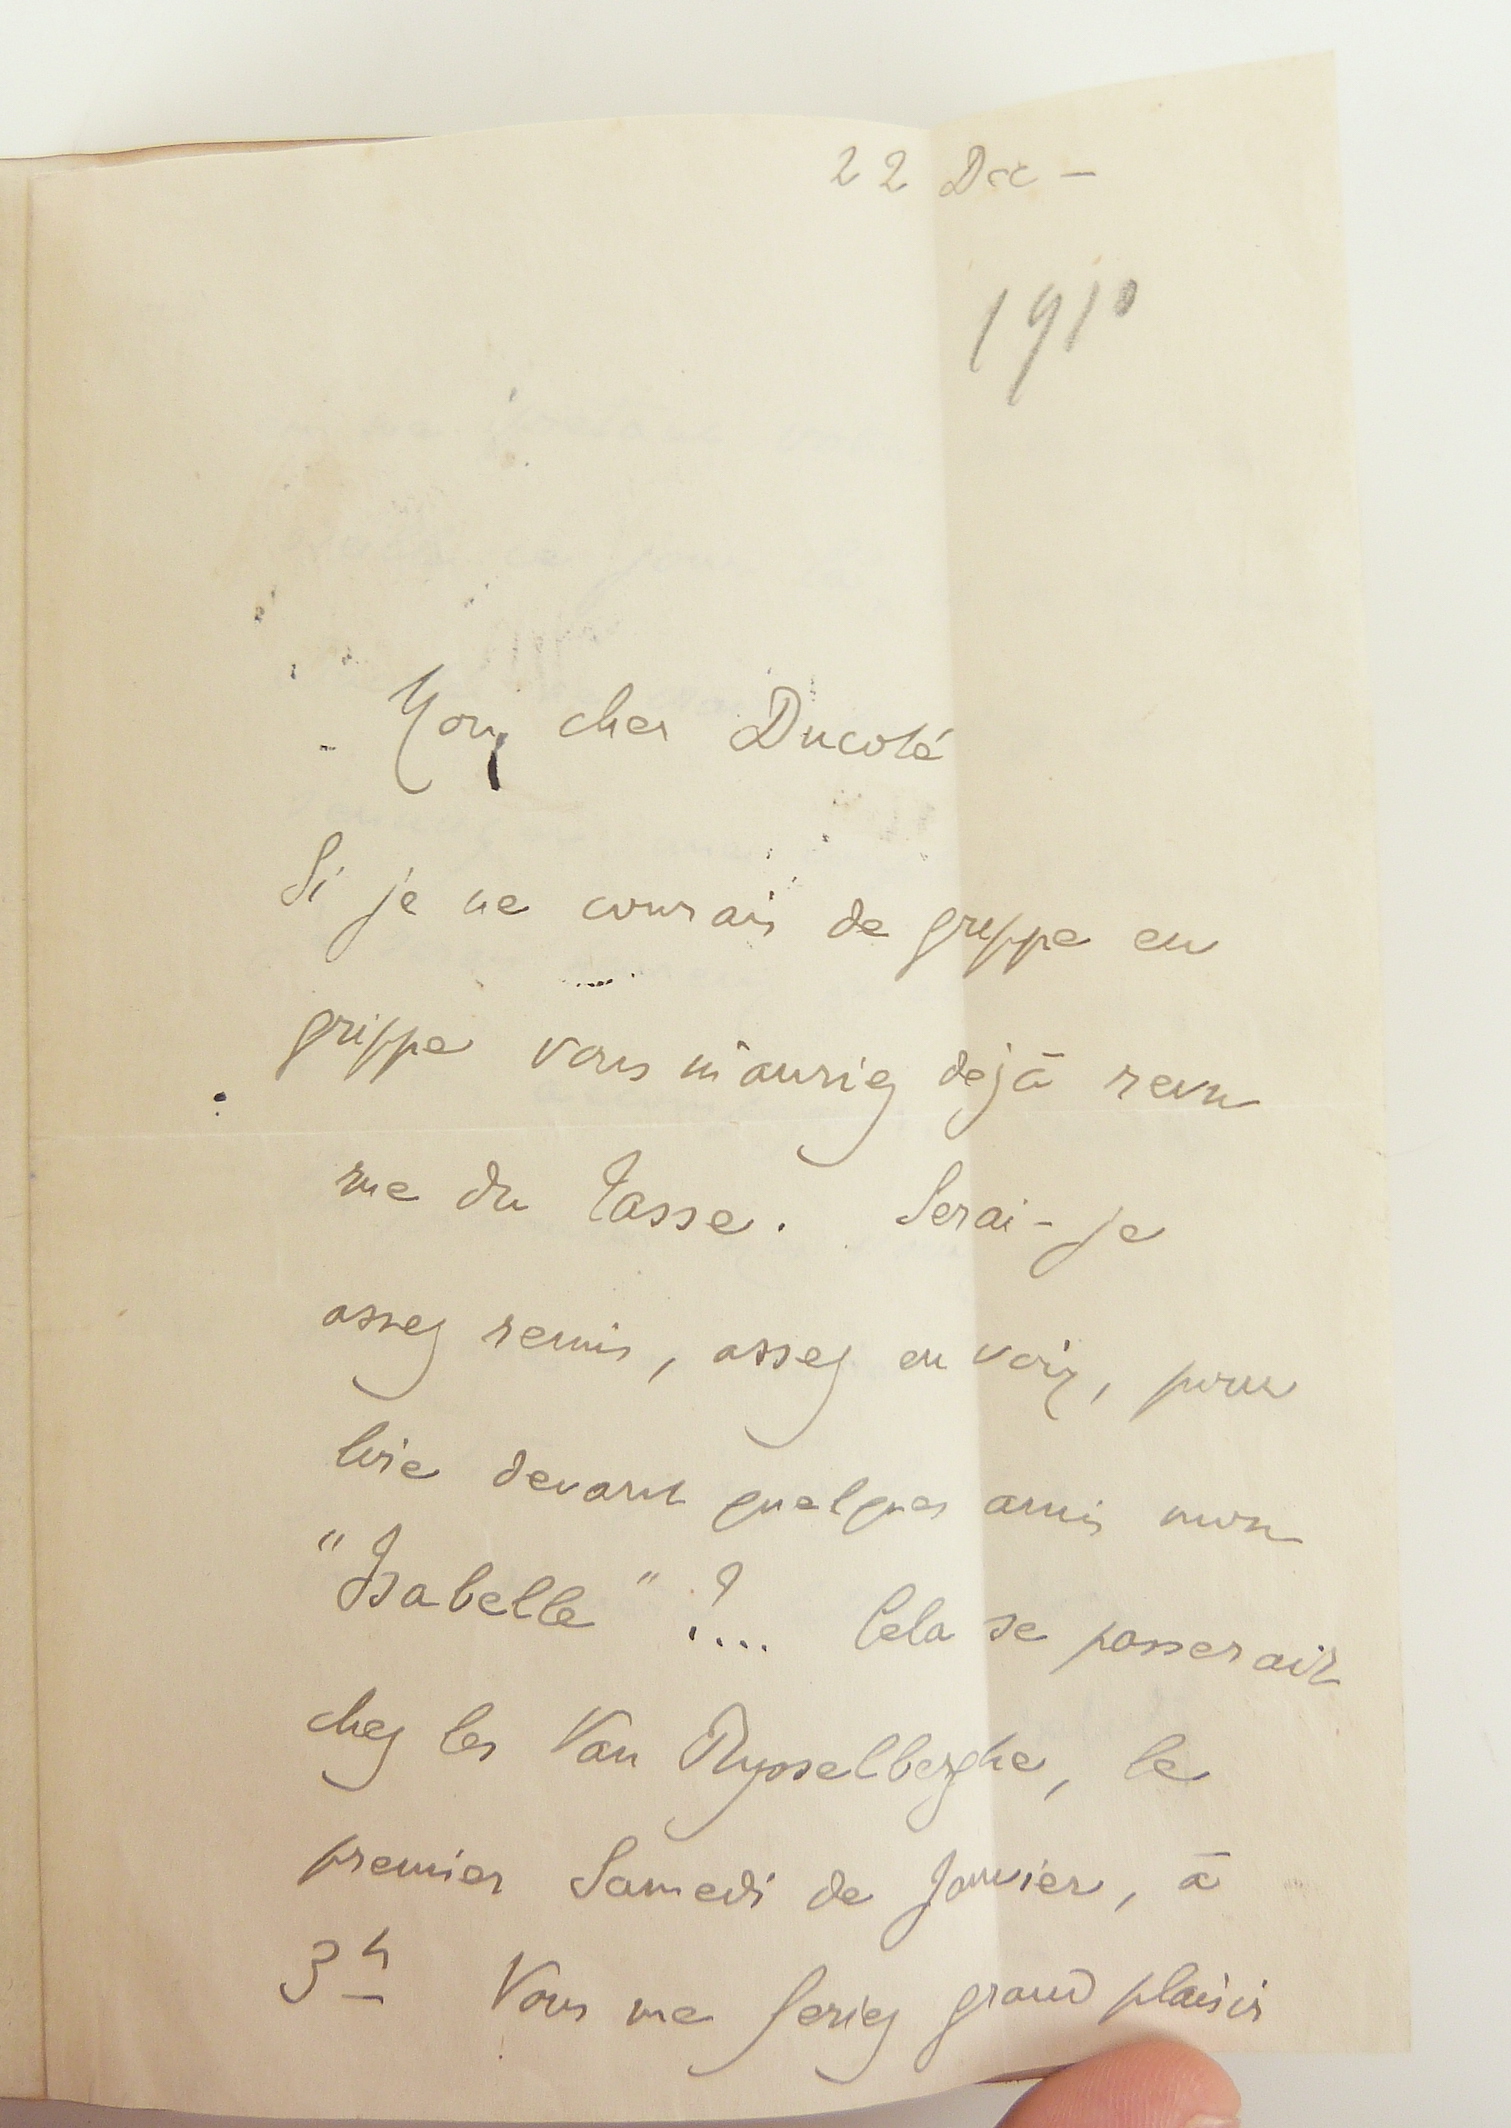 22 Dec —
1910
Mon cher Ducoté
Si je ne courais de grippe en
grippe vous m'auriez déjà revu
rue du Tasse. Serai-je
assez remis, assez en voix, pour
lire devant quelques amis mon
"Isabelle" ?... Cela se passerait
chez les Van Rysselberghe, le
premier Samedi de Janvier, à
3h Vous me feriez grand plaisir